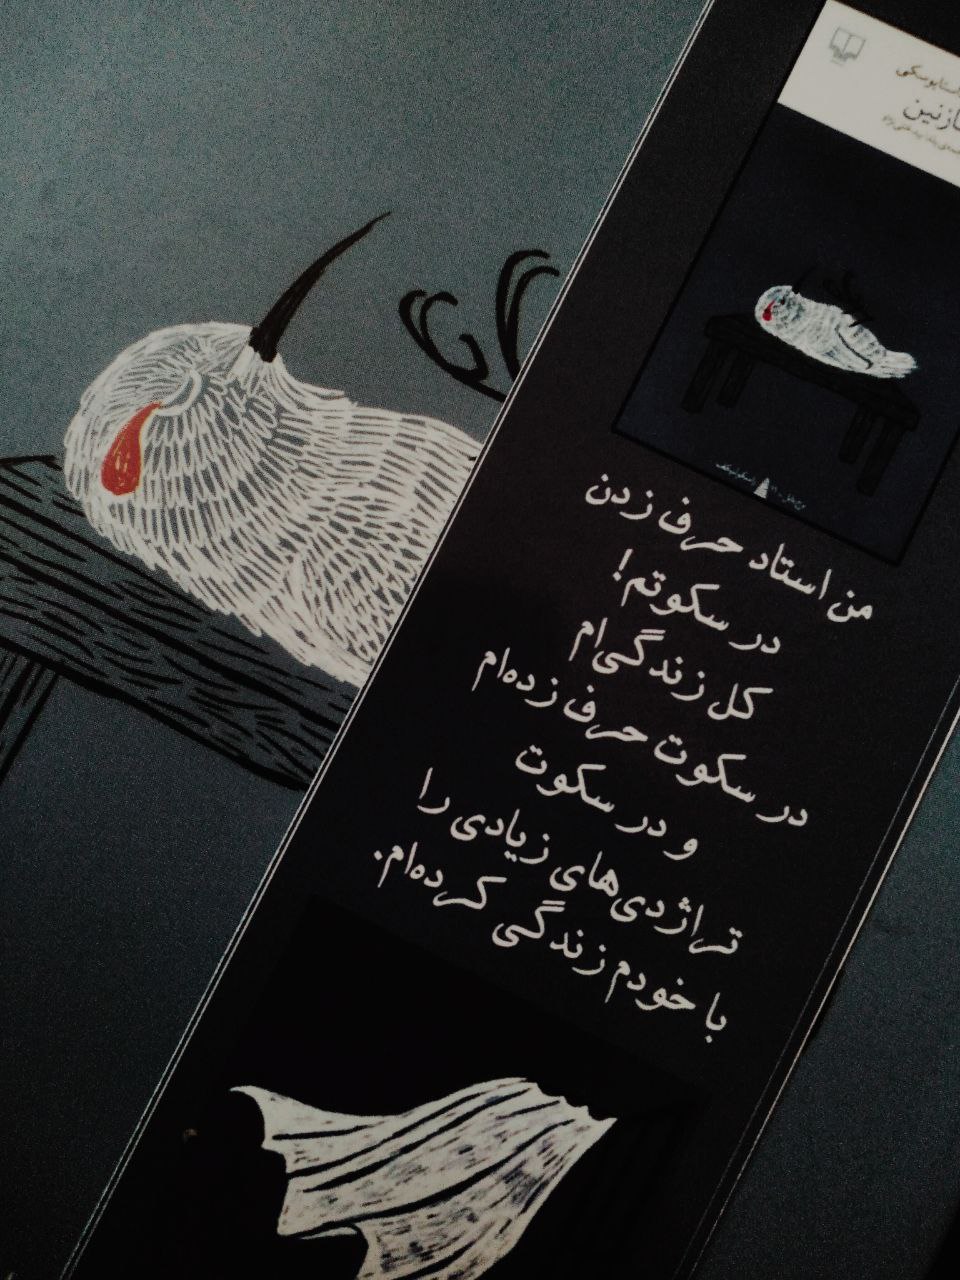 من استاد حرف زدن
در سکوتم!
کل زندگی‌ام
در سکوت حرف زده‌ام
و در سکوت
تراژدی‌های زیادی را
با خودم زندگی کرده‌ام.